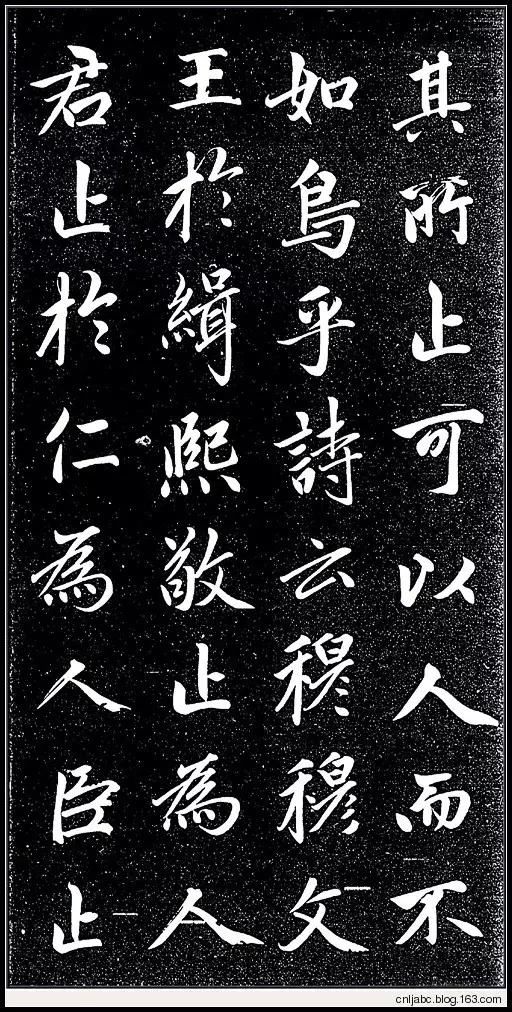 其所止可以人而不
如鳥乎詩云穆穆文
王於緝熙敬止為人
君止於仁為人臣止
cnljabc.blog.163.com